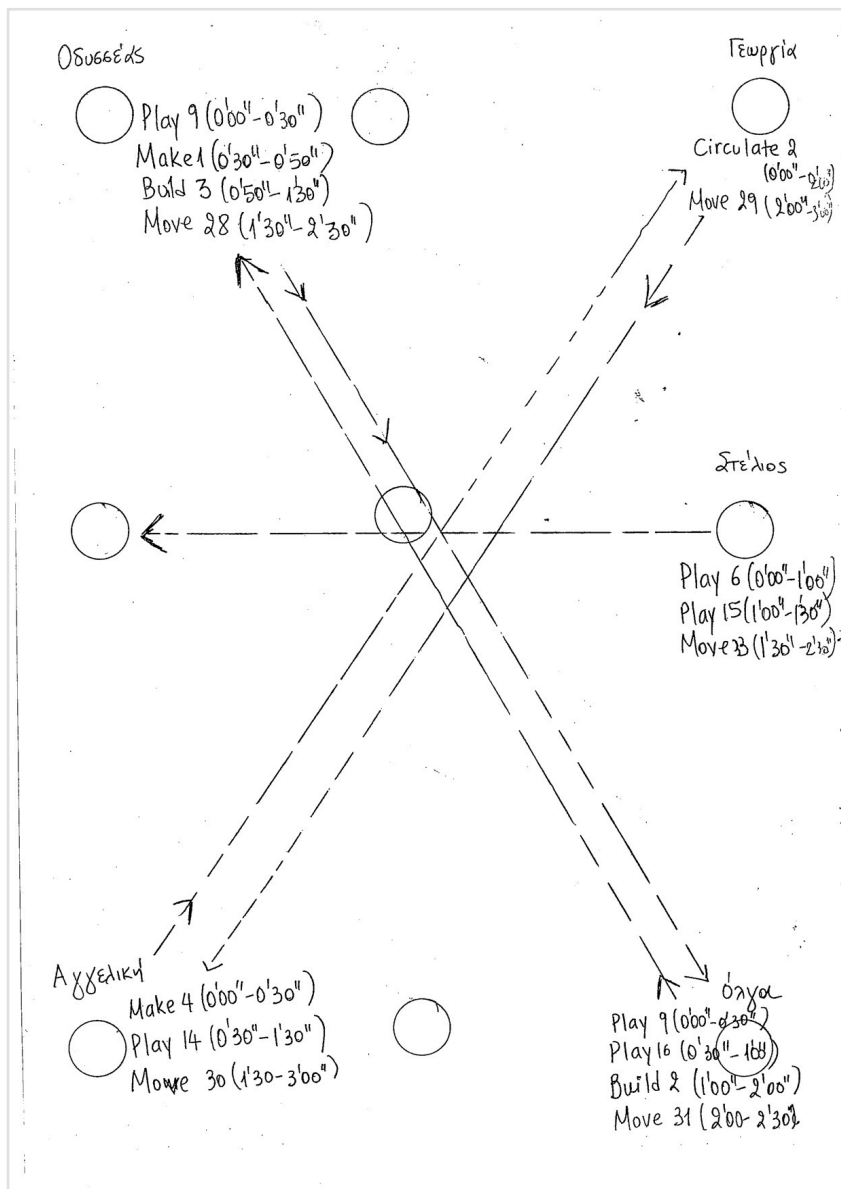 Οδυσσέας
Play 9 (0'00"-0'30")
Make 1 (0'30"-0'50")
Build 3 (0'50"-1'30")
Move 28 (1'30"-2'30")
Γεωργία
Circulate 2
(0'00"-2'00")
Move 29 (2'00"-3'00")
Στέλιος
Play 6 (0'00"-1'00")
Play 15 (1'00"-1'30")
Move 33 (1'30"-2'30")
Αγγελική
Make 4 (0'00"-0'30")
Play 14 (0'30"-1'30")
Move 30 (1'30-3'00")
Όλγα
Play 9 (0'00"-0'30")
Play 16 (0'30"-1'00")
Build 2 (1'00"-2'00")
Move 31 (2'00-2'30")